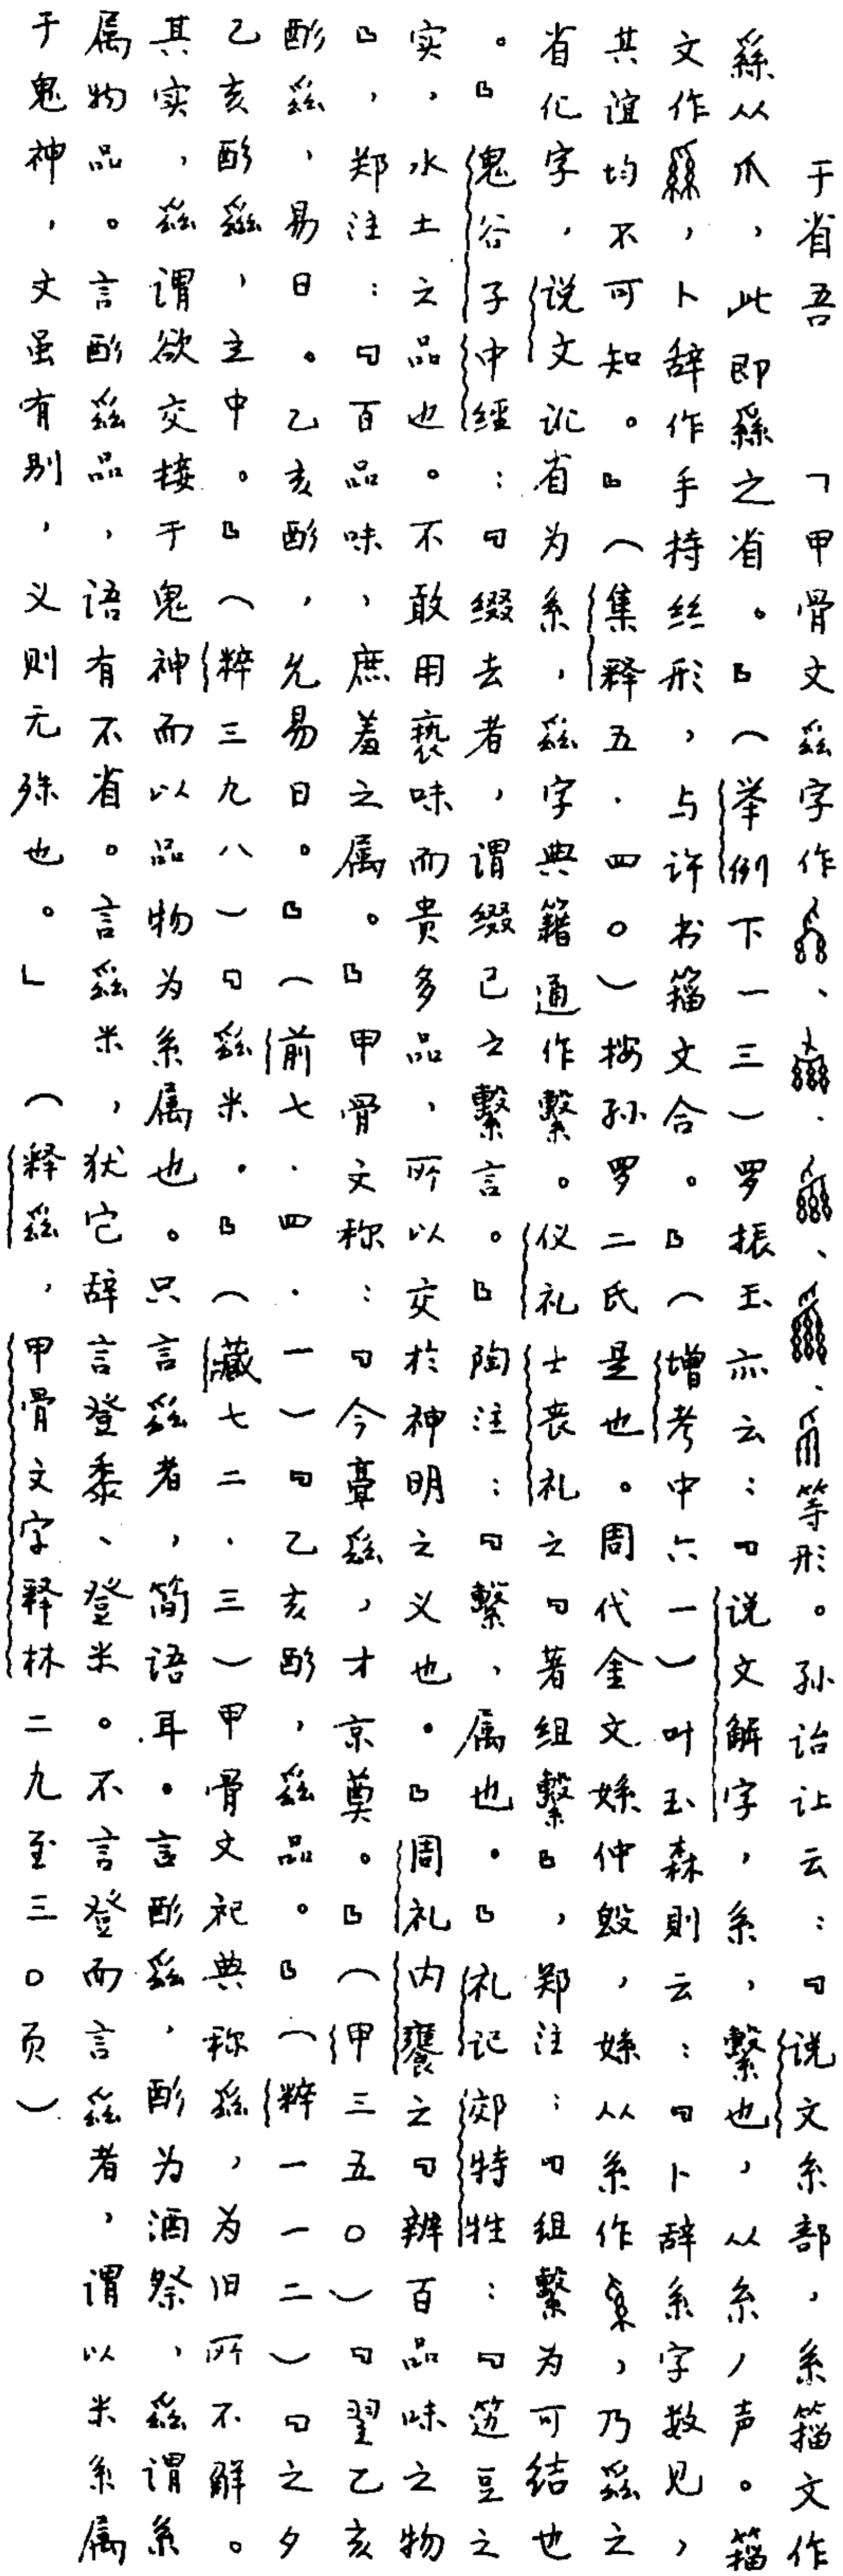 于省吾　「甲骨文𦃟字作、、、、等形。孙诒让云：『说文系部，系籀文作
𦃟从爪，此即𦃟之省。』（举例下一三）罗振玉亦云：『说文解字，系，繫也，从糸，丿声。籀
文作，卜辞作手持丝形，与许书籀文合。』（增考中六一）叶玉森则云：『卜辞系字数见，
其谊均不可知。』（集释五·四〇）按孙罗二氏是也。周代金文㜄仲𣪘，㜄从系作，乃𦃟之
省化字，说文讹省为系，𦃟字典籍通作繫。仪礼士丧礼之『著组繫』，郑注：『组繫为可结也
。』鬼谷子中经：『缀去者，谓缀己之繫言。』陶注：『繫，属也。』礼记郊特牲：『笾豆之
实，水土之品也。不敢用亵味而贵多品，所以交於神明之义也。』周礼内饔之『辨百品味之物
』，郑注：『百品味，庶羞之属。』甲骨文称：『今𦎫𦃟，才京奠。』（甲三五〇）『翌乙亥
酌𦃟，易日。乙亥酌，允易日。』（前七·四·一）『乙亥酌，𦃟品。』（粹一一二）『之夕
乙亥酌𦃟，立中。』（粹三九八）『𦃟米。』（藏七二·三）甲骨文祀典称𦃟，为旧所不解。
其实，𦃟谓欲交接于鬼神而以品物为系属也。只言𦃟者，简语耳。言酌𦃟，酌为酒祭，𦃟谓系
属物品。言酌𦃟品，语有不省。言𦃟米，犹它辞言登黍、登米。不言登而言𦃟者，谓以米系属
于鬼神，文虽有别，义则无殊也。」　（释𦃟，甲骨文字释林二九至三〇页）